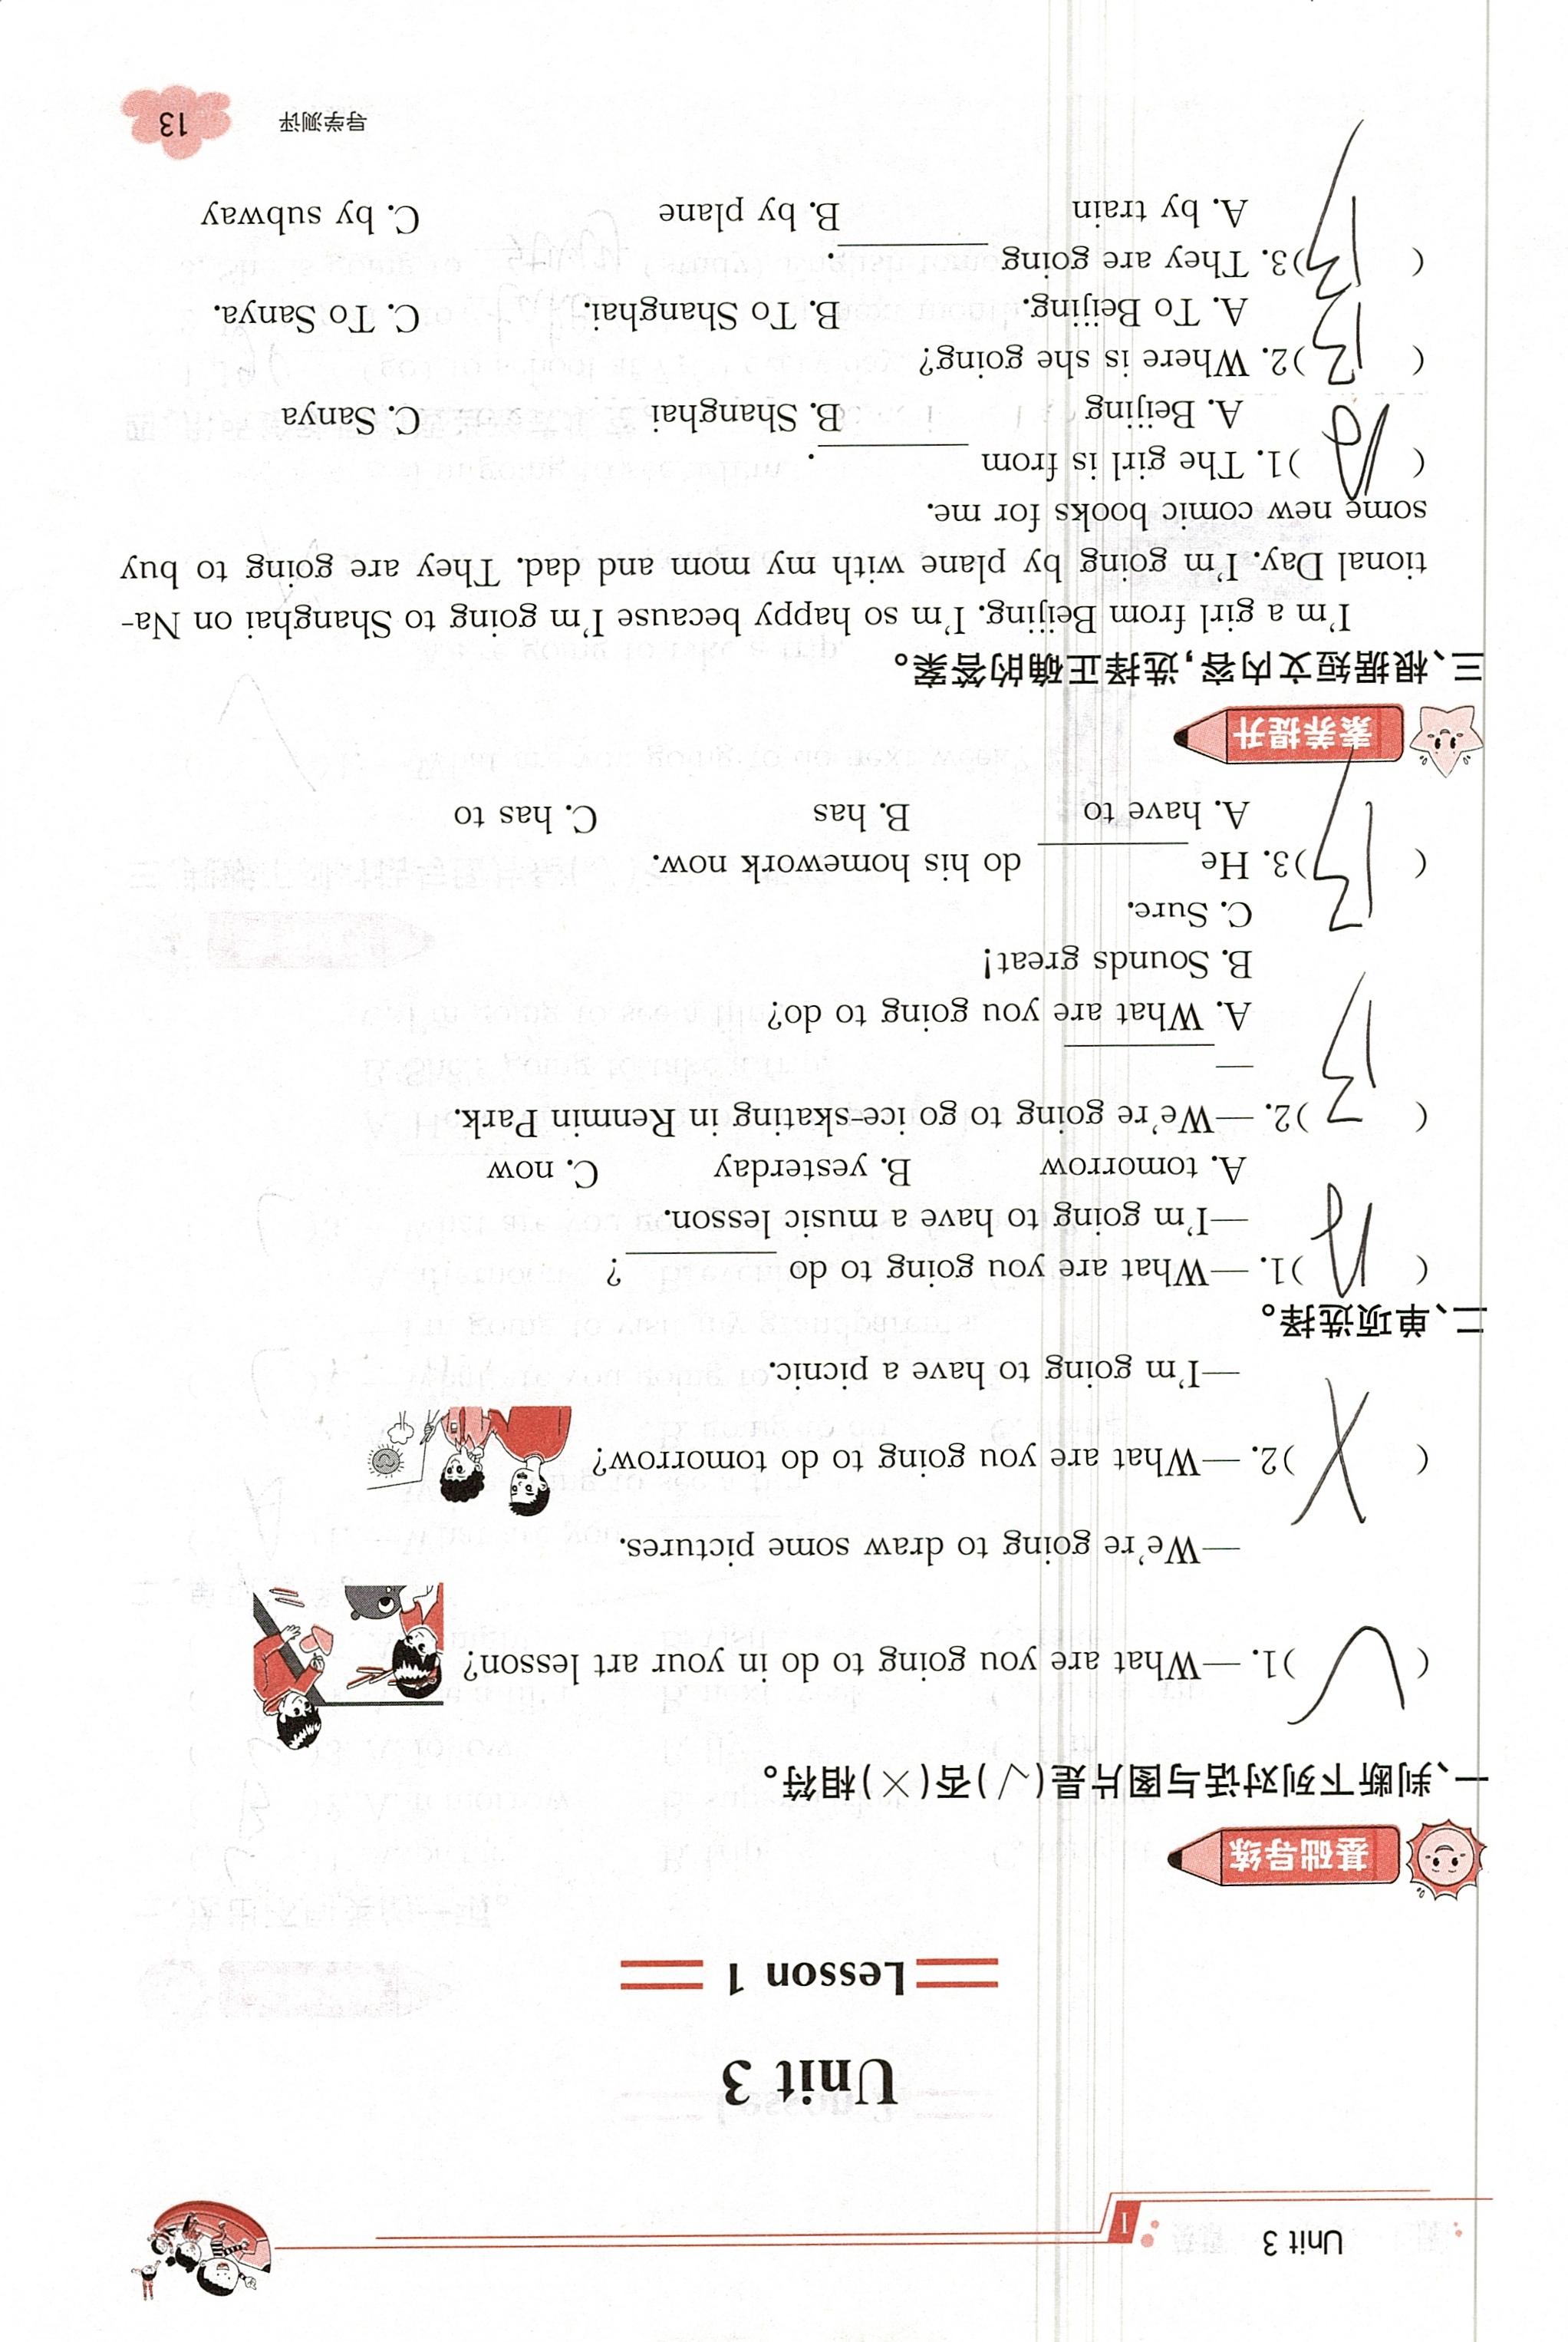 Unit 3
1
Unit 3
Lesson 1
基础导练
一、判断下列对话与图片是(√)否(×)相符。
( √ )1. —What are you going to do in your art lesson?
—We're going to draw some pictures.
( X )2. —What are you going to do tomorrow?
—I'm going to have a picnic.
二、单项选择。
( A )1. —What are you going to do ________?
—I'm going to have a music lesson.
A. tomorrow B. yesterday C. now
( B )2. —We're going to go ice-skating in Renmin Park.
—________
A. What are you going to do?
B. Sounds great!
C. Sure.
( B )3. He ________ do his homework now.
A. have to B. has C. has to
素养提升
三、根据短文内容,选择正确的答案。
I'm a girl from Beijing. I'm so happy because I'm going to Shanghai on Na-
tional Day. I'm going by plane with my mom and dad. They are going to buy
some new comic books for me.
( A )1. The girl is from ________.
A. Beijing B. Shanghai C. Sanya
( B )2. Where is she going?
A. To Beijing. B. To Shanghai. C. To Sanya.
( B )3. They are going ________.
A. by train B. by plane C. by subway
导学测评 13